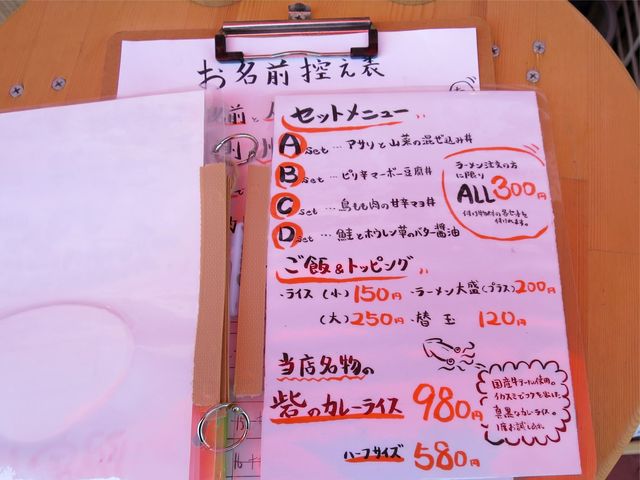 お名前控え表
セットメニュー
A set … アサリと山菜の混ぜ込み丼
B set … ピリ辛マーボー豆腐丼
C set … 鳥もも肉の甘辛マヨ丼
D set … 鮭とホウレン草のバター醤油
ラーメン注文の方
に限り
ALL300円
ご飯&トッピング
・ライス(小)150円・ラーメン大盛(プラス)200円
(大)250円・替玉 120円
当店名物の
砦のカレーライス 980円
国産牛テール使用。
イカスミでコクを出した
真黒なカレーライス。
1度お試し下さい。
ハーフサイズ 580円